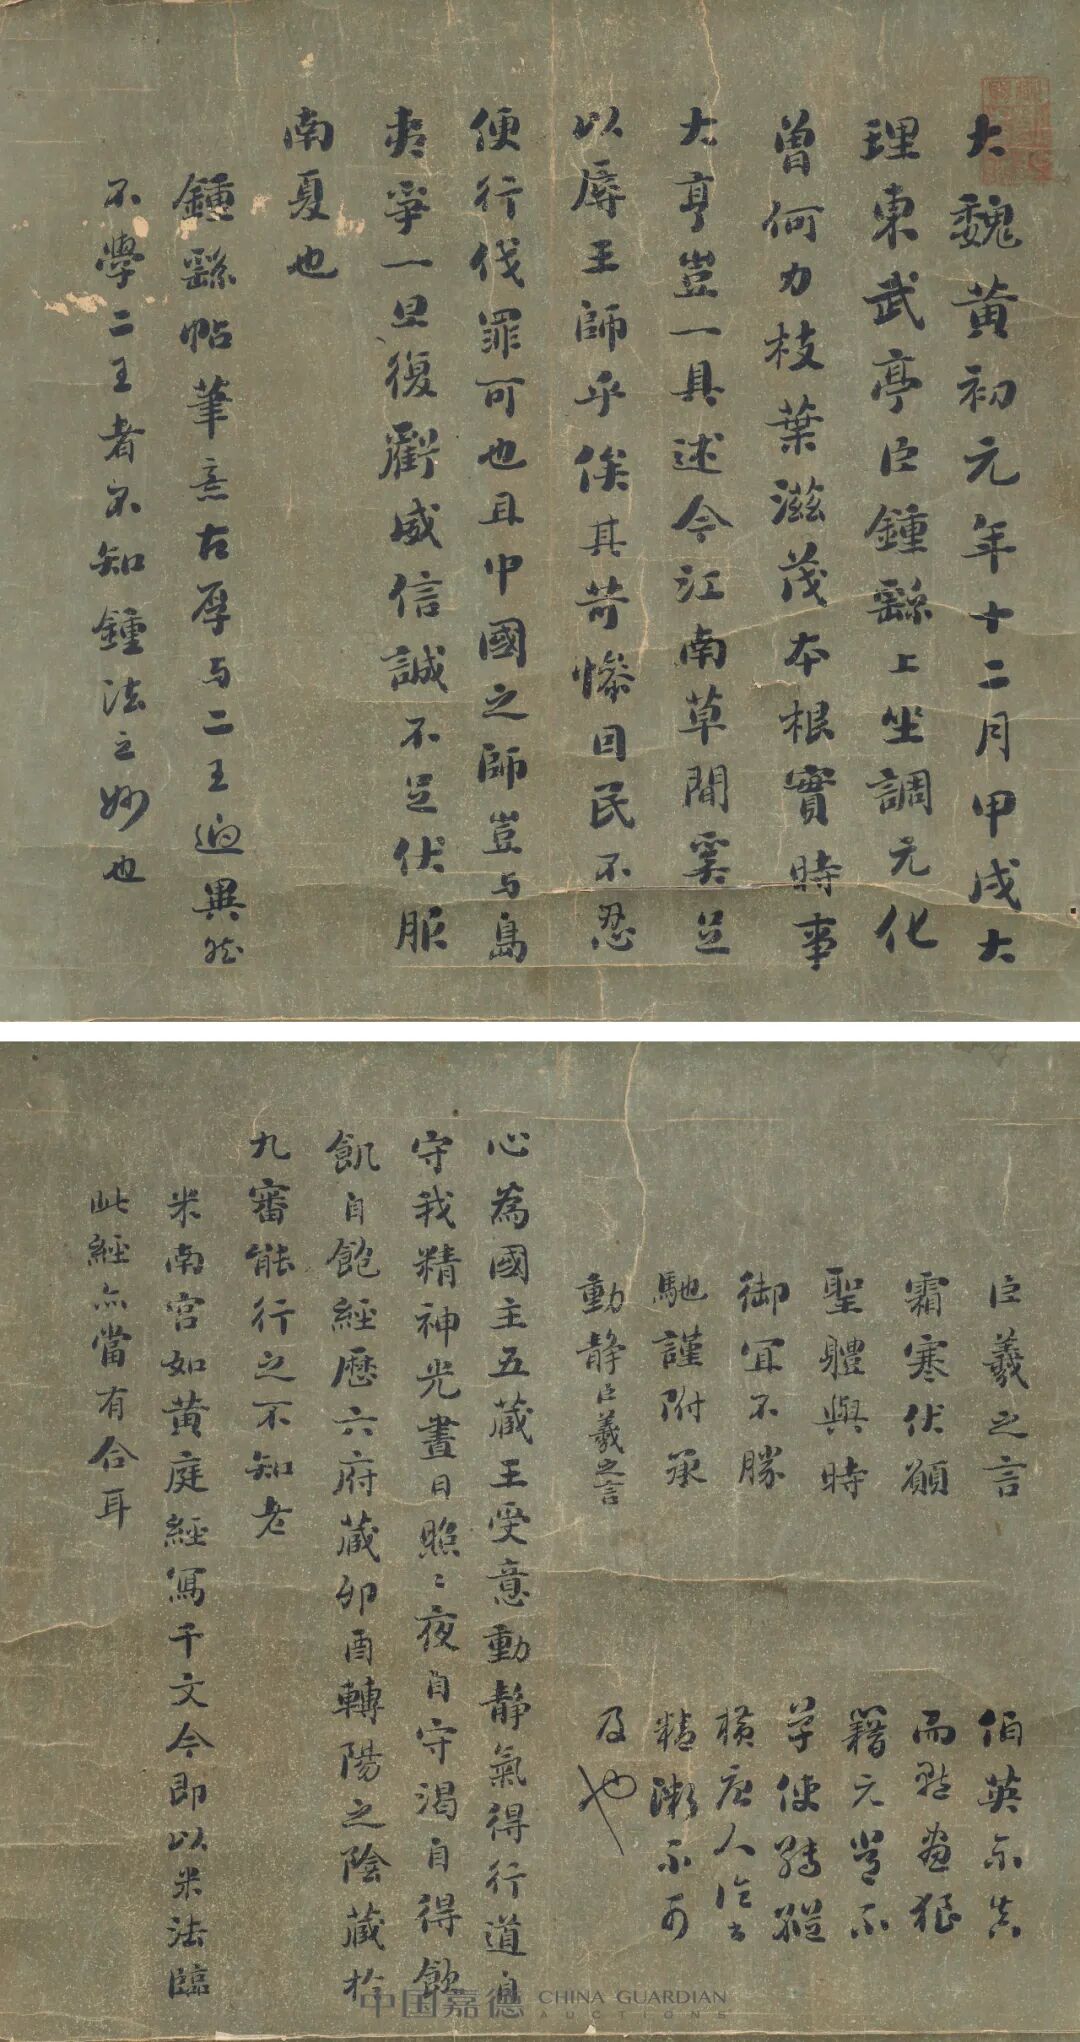 大魏黃初元年十二月甲戌大
理東武亭臣鍾繇上坐調元化
曾何力枝葉滋茂本根實時事
大亨豈一具述今江南草間奚足
以辱王師乎俟其苛慘困民不忍
便行伐罪可也且中國之師豈与島
夷爭一旦復虧威信誠不足伏服
南夏也
鍾繇帖筆意古厚与二王迥異然
不學二王者不知鍾法之妙也
臣羲之言
霜寒伏願
聖體與時
御宜不勝
馳謹附承
動靜臣羲之言
伯英不真
而點畫狼
籍元常不
草使轉縱
橫唐人臨書
精潄不可
及也
心為國主五藏王受意動靜氣得行道自
守我精神光晝日照〻夜自守渴自得飲
飢自飽經歷六府藏卯酉轉陽之陰藏於
九審能行之不知老
米南宮如黃庭經寫千文今即以米法臨
此經亦當有合耳
中国嘉德 CHINA GUARDIAN
AUCTIONS